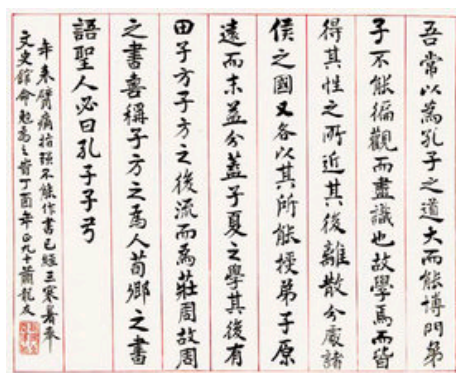 吾常以為孔子之道大而能博門弟
子不能徧觀而盡識也故學焉而皆
得其性之所近其後離散分處諸
侯之國又各以其所能授弟子原
遠而末益分蓋子夏之學其後有
田子方子方之後流而為莊周故周
之書喜稱子方之為人荀卿之書
語聖人必曰孔子子弓
年來臂痛指強不能作書已經三寒暑本
文史館命勉為之時丁酉年正九十蕭龍友